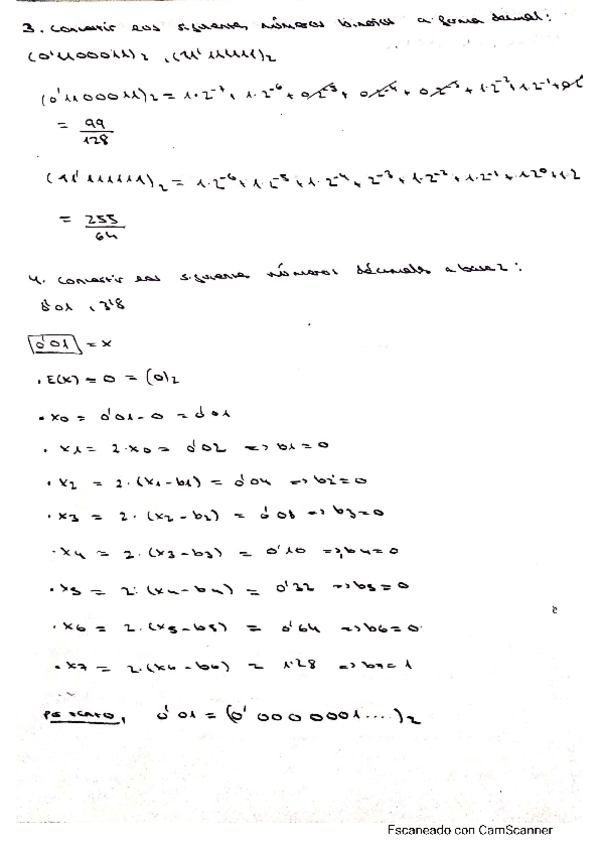 3. Convertir los siguientes números binarios a forma decimal:
(0'1100011)₂ , (11'111111)₂
(0'1100011)₂ = 1·2⁻⁷ + 1·2⁻⁶ + 0·2⁻⁵ + 0·2⁻⁴ + 0·2⁻³ + 1·2⁻² + 1·2⁻¹ +
= 99/128
(11'111111)₂ = 1·2⁻⁶ + 1·2⁻⁵ + 1·2⁻⁴ + 2⁻³ + 1·2⁻² + 1·2⁻¹ + 1·2⁰ + 1·2
= 255/64
4. Convertir los siguientes números decimales a base 2:
0'01 , 3'8
0'01 = x
· E(x) = 0 = (0)₂
· x0 = 0'01 - 0 = 0'01
· x1 = 2·x0 = 0'02 => b1 = 0
· x2 = 2·(x1-b1) = 0'04 => b2 = 0
· x3 = 2·(x2-b2) = 0'08 => b3 = 0
· x4 = 2·(x3-b3) = 0'10 => b4 = 0
· x5 = 2·(x4-b4) = 0'32 => b5 = 0
· x6 = 2·(x5-b5) = 0'64 => b6 = 0
· x7 = 2·(x6-b6) = 1'28 => b7 = 1
0'01 = (0'0000001....)₂
Escaneado con CamScanner